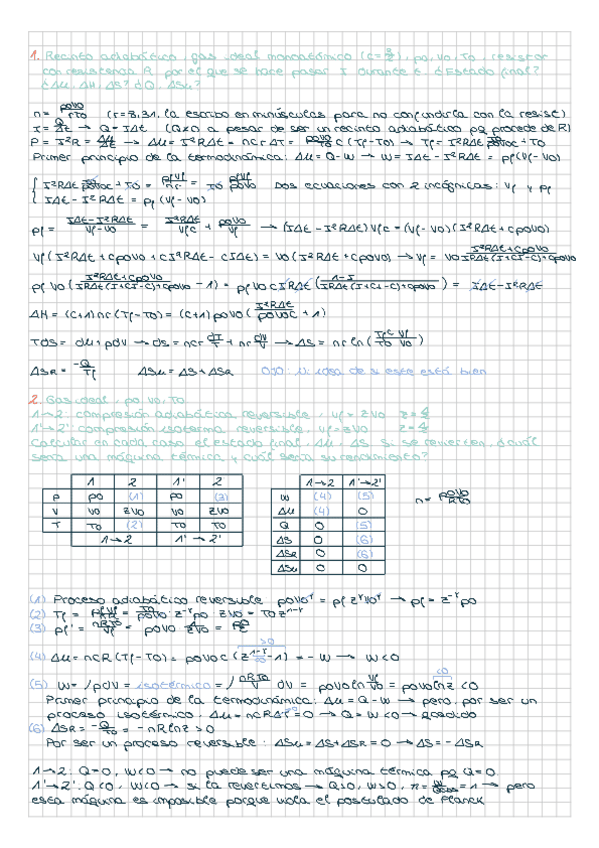 1. Recinto adiabático, gas ideal monoatómico (c=3/2), po, vo, To, resistor
con resistencia R por el que se hace pasar I durante t. ¿Estado final?
¿ΔU, ΔH, ΔS? ¿Q, ΔSu?
n = povo/rTo (r=8,31, la escribo en minúsculas para no confundirla con la resist)
I = Q/Δt → Q = IΔt (Q≠0 a pesar de ser un recinto adiabático pq procede de R)
P = I²R = Δu/Δt → Δu = I²RΔt = ncrΔT = povo/To c (Tf-To) → Tf = I²RΔt To/povoc + To
Primer principio de la termodinámica: Δu = Q-W → W = IΔt - I²RΔt = pf(vf-vo)
I²RΔt To/povoc + To = pfvf/nr = To pfvf/povo Dos ecuaciones con 2 incógnitas: vf y pf
IΔt - I²RΔt = pf(vf-vo)
pf = IΔt-I²RΔt/vf-vo = I²RΔt/vfc + povo/vf → (IΔt - I²RΔt)vfc = (vf-vo)(I²RΔt + cpovo)
vf(I²RΔt + cpovo + cI²RΔt - cIΔt) = vo(I²RΔt + cpovo) → vf = vo
ΔH = (c+1)nr(Tf-To) = (c+1)povo(I²RΔt/povoc + 1)
Tds = du + pdv → ds = ncr dT/T + nr dv/v → ΔS = nr ln(
ΔSR = -Q/Tf ΔSu = ΔS + ΔSR OJO: Ni idea de si este está bien
2. Gas ideal, po, vo, To
1→2: compresión adiabática reversible, vf = zvo
1'→2': compresión isoterma reversible, vf = zvo
Calcular en cada caso el estado final, Δu, ΔS. Si se revierten, ¿cuál
sería una máquina térmica, y cuál sería su rendimiento?
1 2 1' 2
P po (1) po (3)
V vo zvo vo zvo
T To (2) To To
1→2 1'→2'
1→2 1'→2'
W (4) (5)
Δu (4) 0
Q 0 (5)
ΔS 0 (6)
ΔSR 0 (6)
ΔSu 0 0
n = povo/RTo
(1) Proceso adiabático reversible povo^γ = pf z^γ vo^γ → pf = z^-γ po
(2) Tf = pfvf/nR = To/povo z^-γ po zvo = To z^1-γ
(3) pf' = nRTo/vf = povo 1/zvo = po/z
(4) Δu = ncR(Tf-To) = povoc(z^1-γ - 1) = -W → W<0
>0
(5) W = ∫pdv = isotérmico = ∫ nRTo/v dv = povo ln vf/vo = povo ln z <0
<0
Primer principio de la termodinámica: Δu = Q-W → pero, por ser un
proceso isotérmico, Δu = ncRΔT = 0 → Q = W <0 → Qcedido
(6) ΔSR = -Q/To = -nR ln z >0
Por ser un proceso reversible: ΔSu = ΔS + ΔSR = 0 → ΔS = -ΔSR
1→2: Q=0, W<0 → no puede ser una máquina térmica pq Q=0
1'→2': Q<0, W<0 → si la revertimos → Q>0, W>0, η = = 1 → pero
esta máquina es imposible porque viola el postulado de Planck